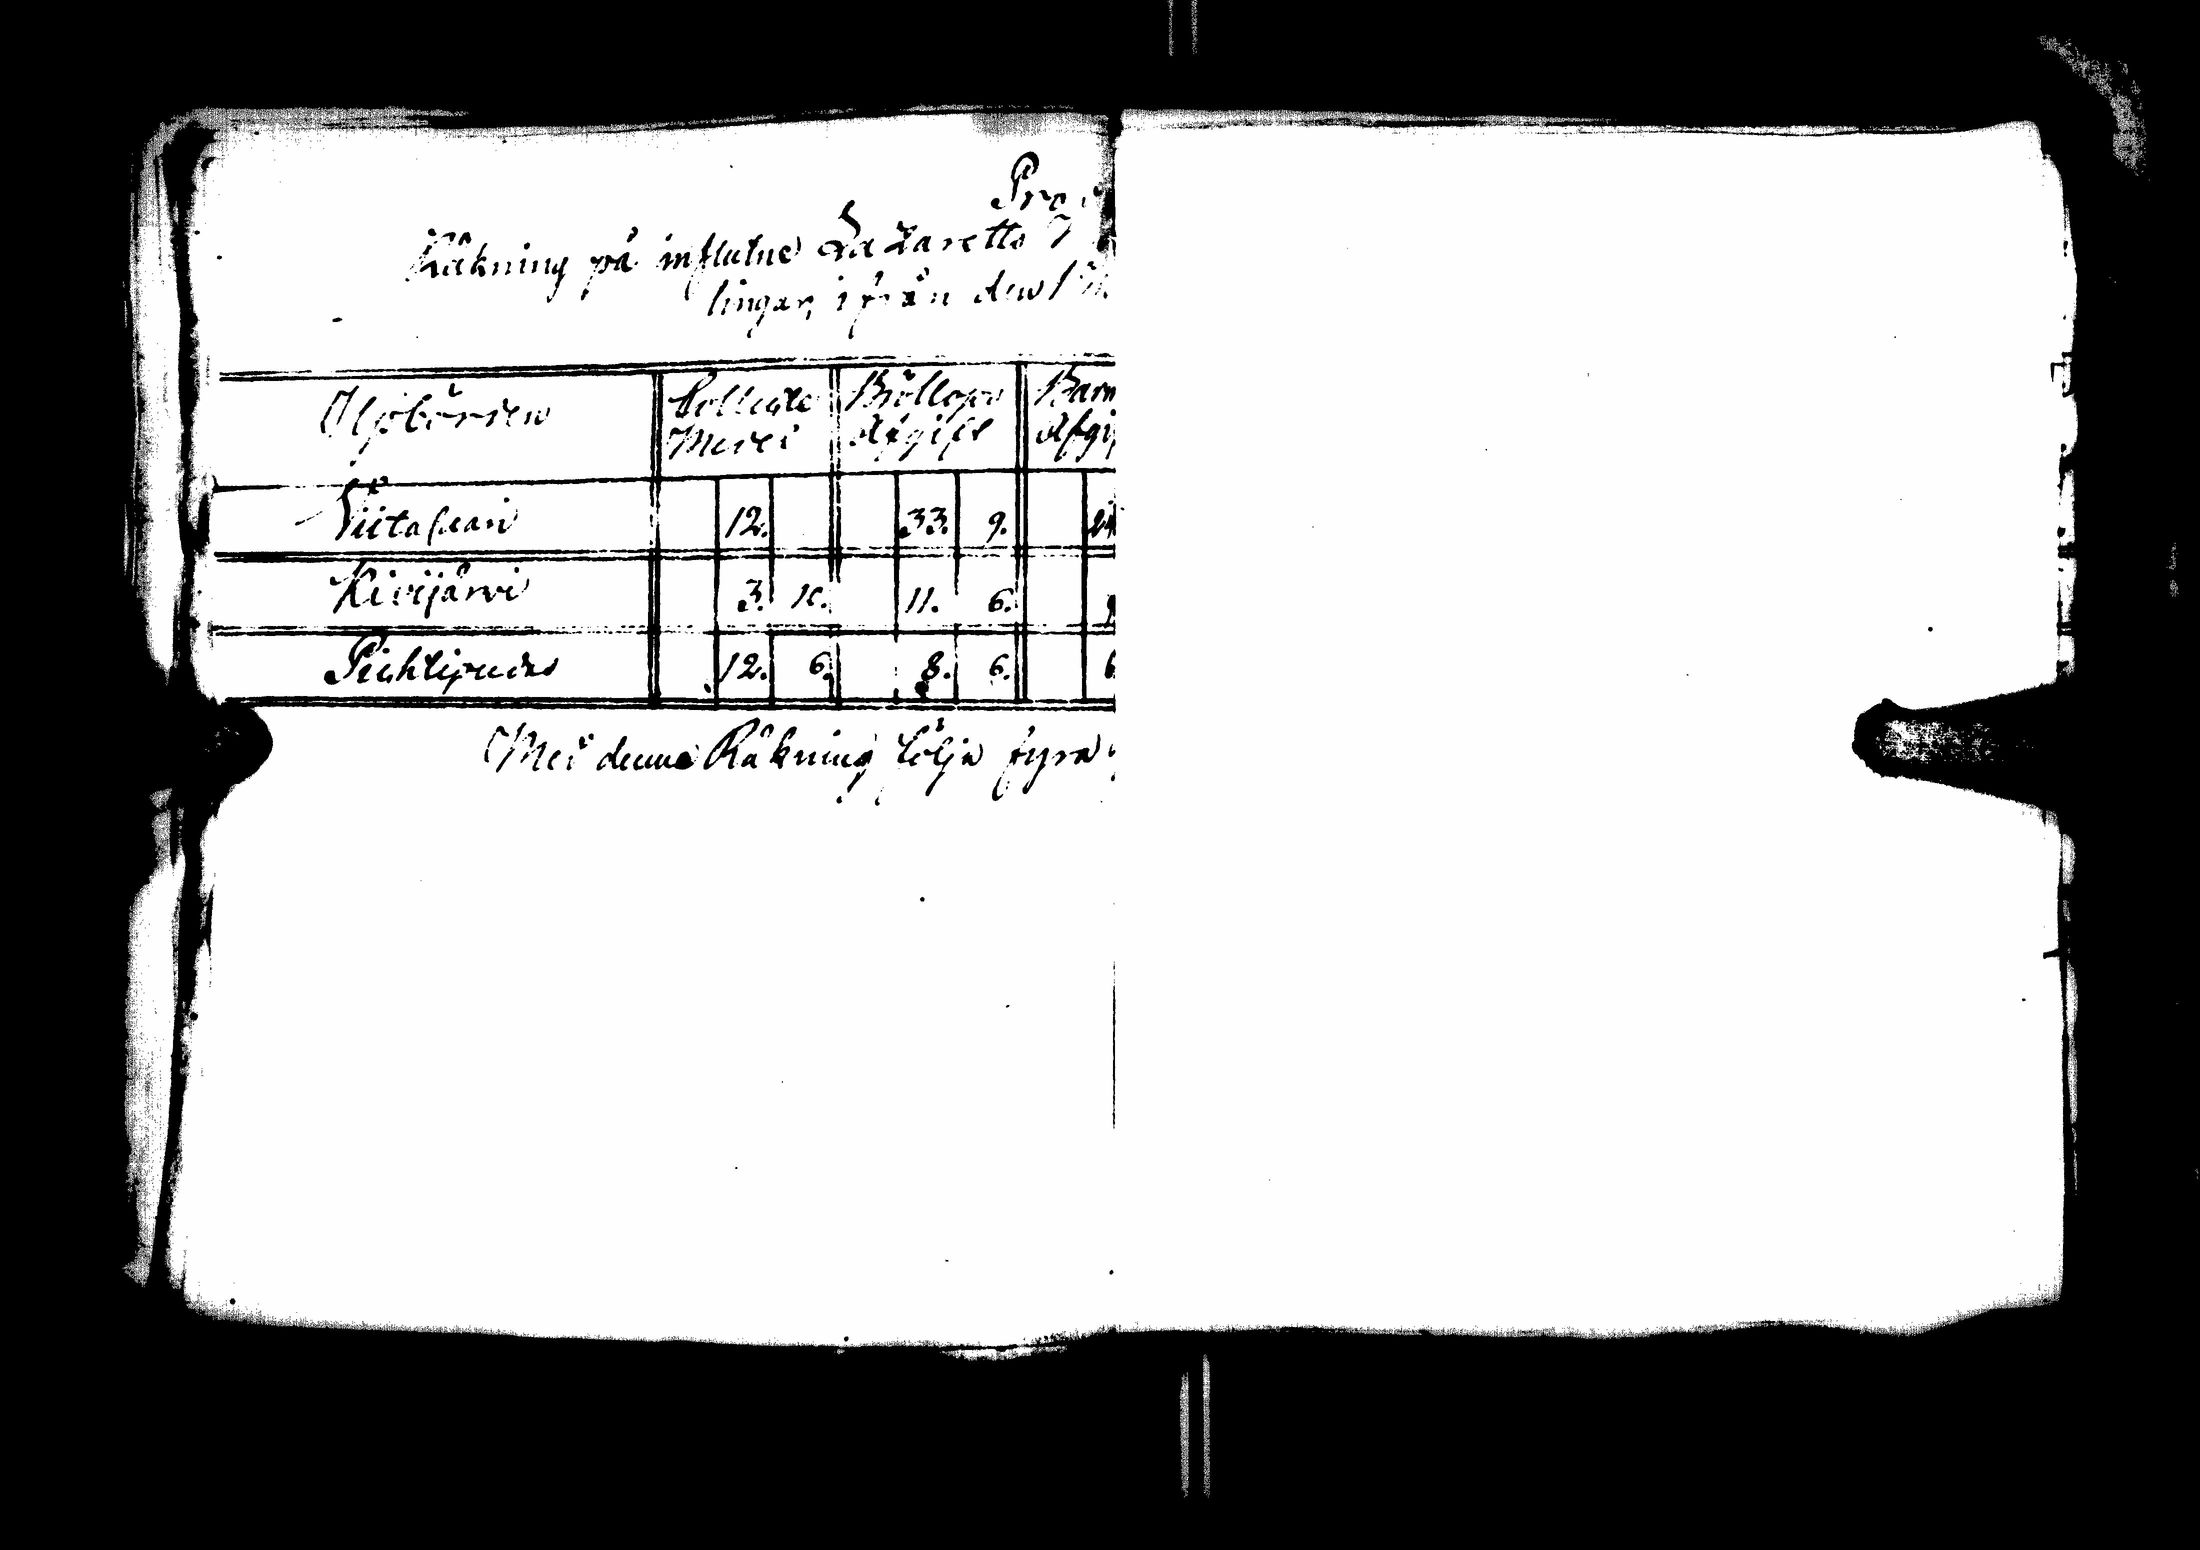 Pro
Räkning på influtne Lazaretts
lingar, ifrån den 1
Upbörden
Collecte
Medel
Bröllops
Afgift
Barn
Afgif
Viitasaari 12. 33. 9. 24
Kivijärvi 3. 10. 11. 6.
Pihlipudas 12. 6. 8. 6. 6
Med denne Räkning följa fyra